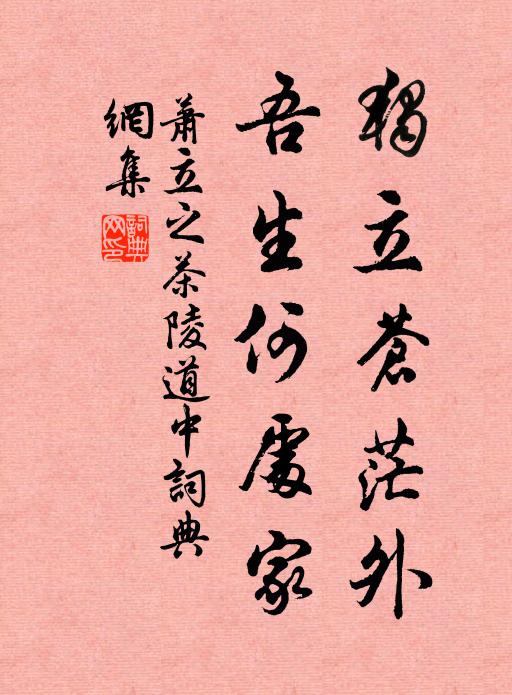 獨立蒼茫外
吾生何處家
蕭立之茶陵道中詞典
網集
詞典网印